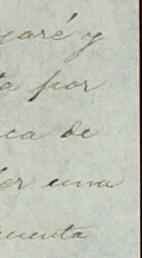 garé y
a por
ca de
er una
cuenta